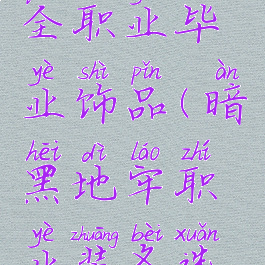 全职业毕
yè shì pǐn àn
业饰品(暗
hēi dì láo zhí
黑地牢职
yè zhuāng bèi xuǎn
业装备选